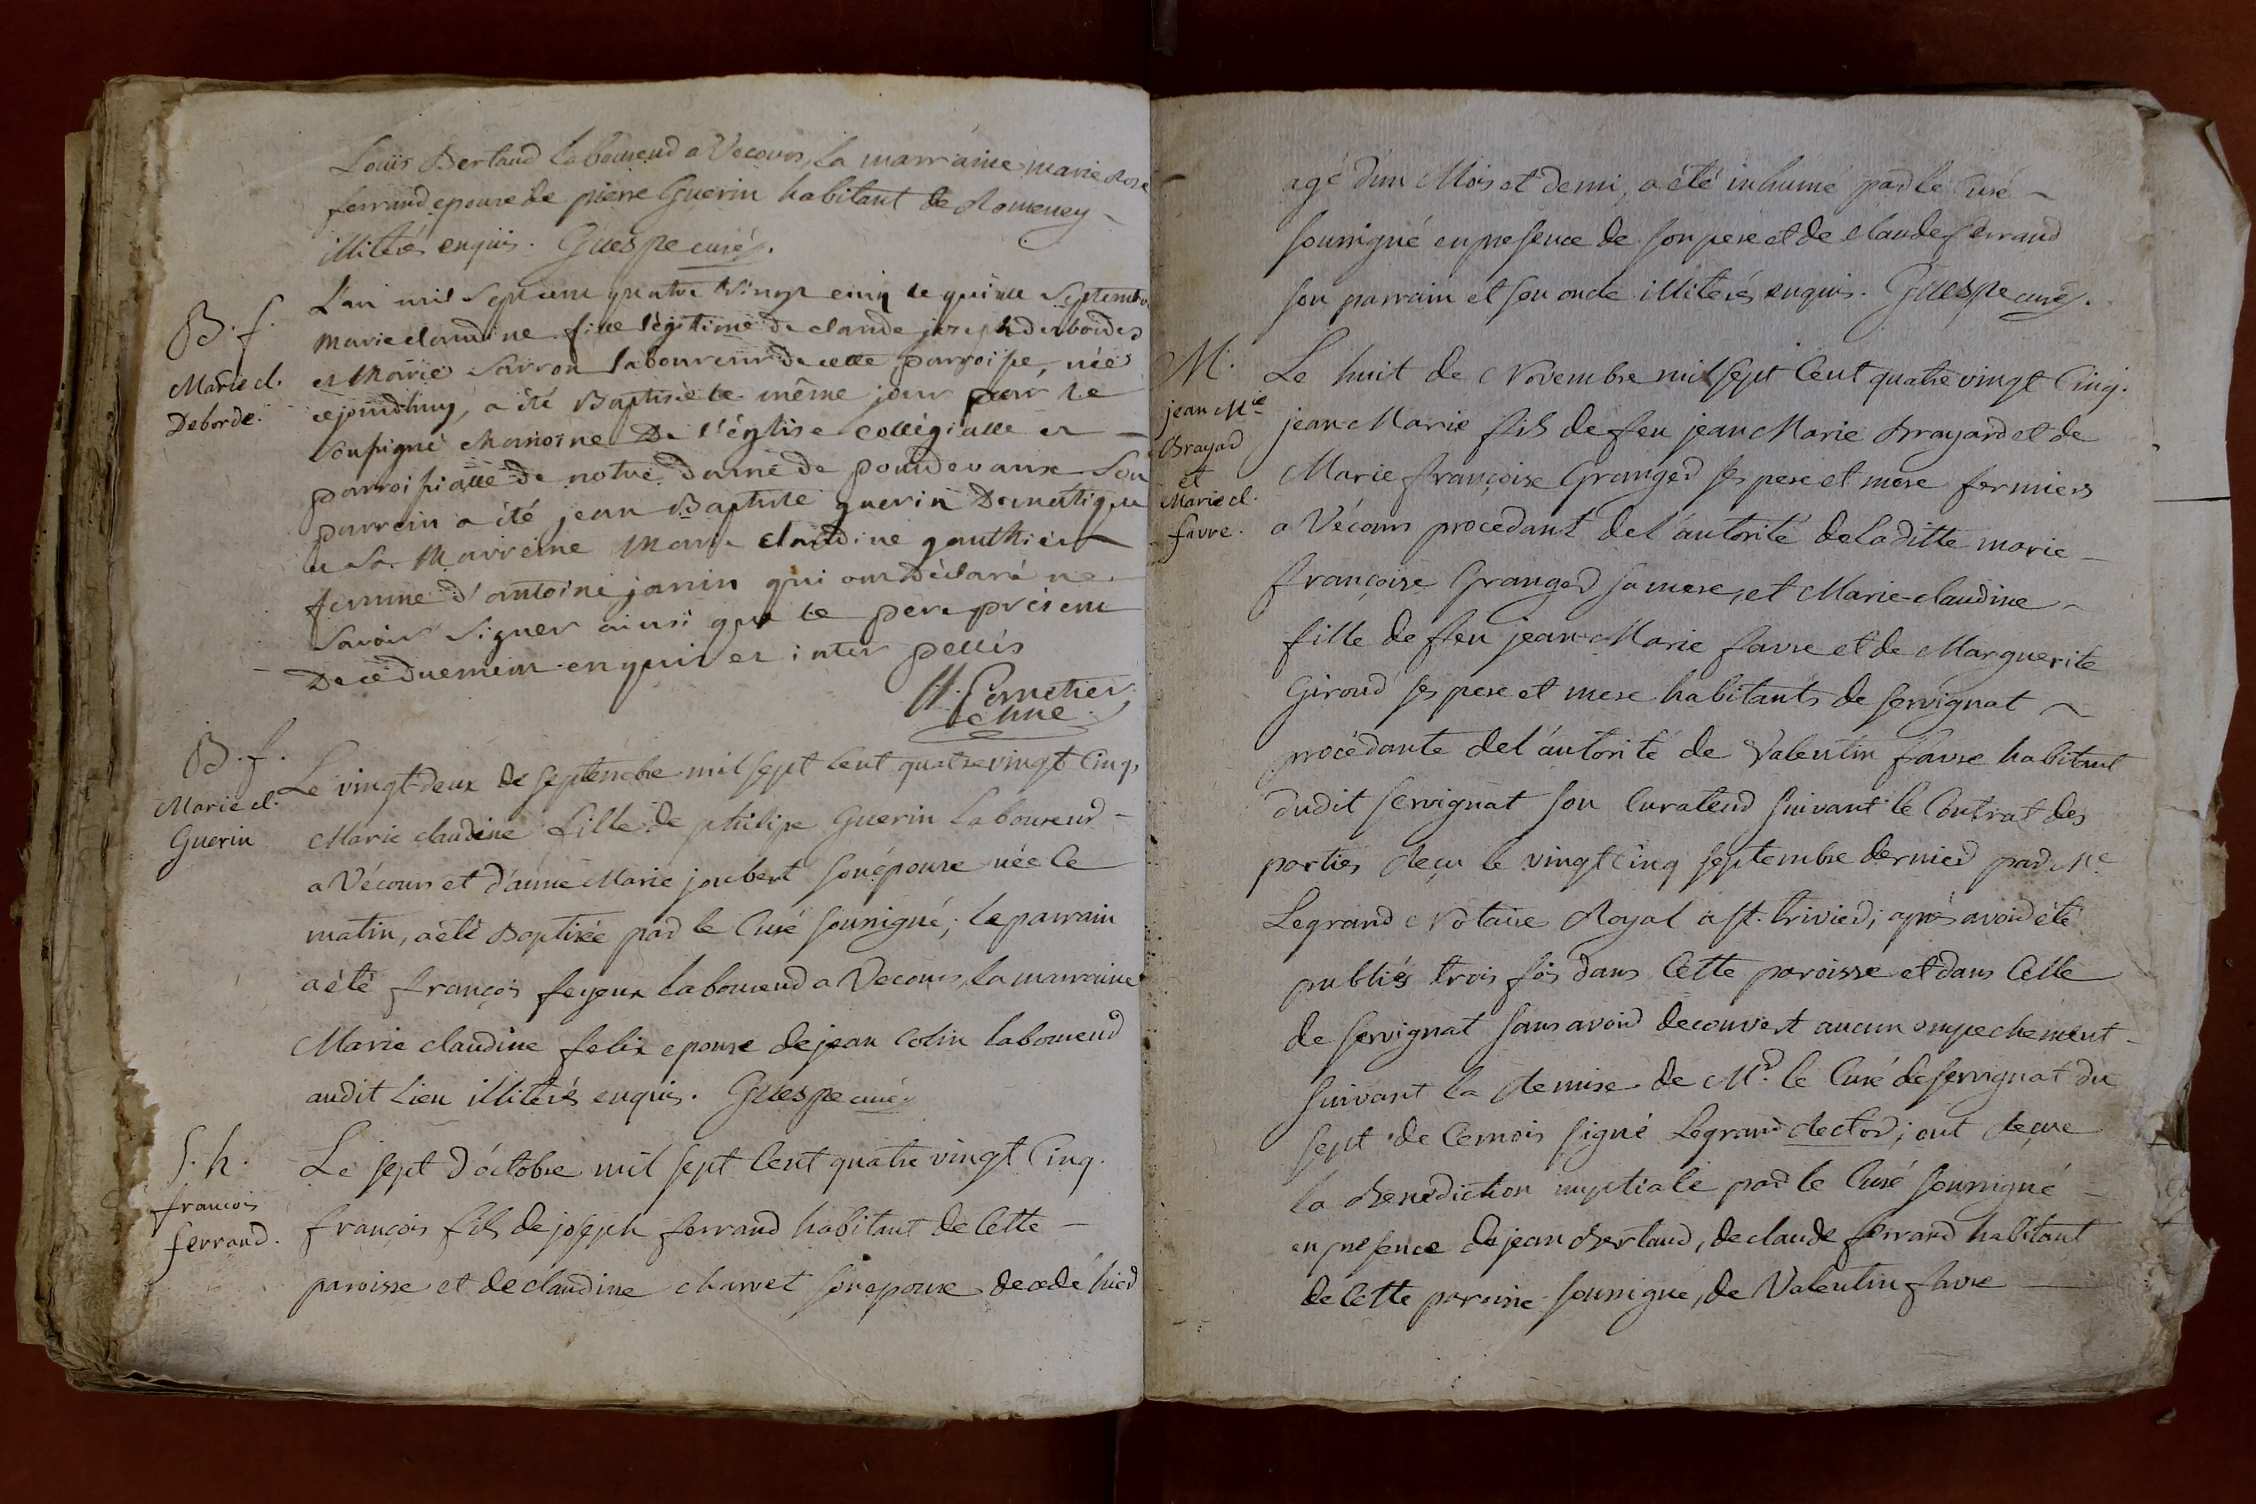 Louis Bertaud laboureur a Vecours, la marraine marie Rose
ferrand epouse de pierre Guerin habitant de Romeney
illiterés enquis. Guespe curé.
B. f.
Marie cl.
Deborde.
L'an mil sept cent quatre vingt cinq le quinze septembre
marie claudine fille légitime de claude joseph desbordes
et Marie Sarron laboureur de cette parroisse, née
cejourdhuy, a été Baptisée le même jour par le
soussigné chanoine De l'église collégialle et
parroissialle de notre dame de pontdevaux Son
parrein a été jean Baptiste guerin Domestique
et sa marreine Marie claudine gauthier
femme d'antoine janin qui ont Déclaré ne
savoir signer ainsi que le père présent
De ce duement enquis et inter pellés
ch.ne
B. f.
Marie cl.
Guerin
Le vingt-deux de septembre mil sept cent quatre vingt cinq,
Marie claudine fille de philipe Guerin laboureur
a Vécours et d'anne Marie joubert son épouse née le
matin, a été Baptisée par le curé soussigné; le parrain
a été françois feyeux laboureur a Vecours, la marraine
Marie claudine felix epouse de jean Colin laboureur
audit Lieu illiterés enquis. Guespe curé
S. h.
francois
ferrand.
Le sept d'octobre mil sept cent quatre vingt cinq.
françois fils de joseph ferrand habitant de cette
paroisse et de claudine charvet son epouse decedé hier
agé d'un Mois et demi, a été inhumé par le Curé
soussigné en presence de son pere et de claude ferrand
son parrain et son oncle illiterés enquis. Guespe curé.
M.
jean M.ie
Brayard
et
Marie cl.
favre.
Le huit de Novembre mil sept cent quatre vingt cinq.
jean Marie fils de feu jean Marie Brayard et de
Marie françoise Granger ses pere et mere fermiers
a Vécours procedant de l'autorité de laditte marie
françoise Granger sa mere, et Marie-claudine
fille de feu jean-Marie favre et de Marguerite
Giroud ses pere et mere habitants de servignat
procédante de l'autorité de Valentin favre habitant
dudit servignat son curateur suivant le Contrat des
parties Reçu le vingt cinq septembre dernier par M.e
Legrand Notaire Royal a St. trivier; après avoir été
publiés trois fois dans cette paroisse et dans celle
de servignat sans avoir decouvert aucun empechement
suivant la Remise de M.r le Curé de servignat du
sept de ce mois signé Legrand Rector; ont Reçu
la Benediction nuptiale par le Curé soussigné
en presence de jean Bertaud, de claude ferrand habitant
de cette paroisse soussigne, de Valentin favre